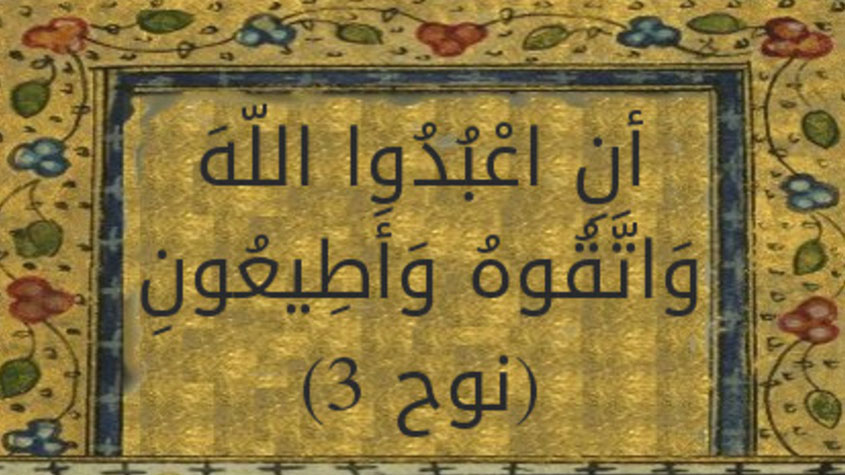 أَنِ اعْبُدُوا اللَّهَ
وَاتَّقُوهُ وَأَطِيعُونِ
(نوح 3)